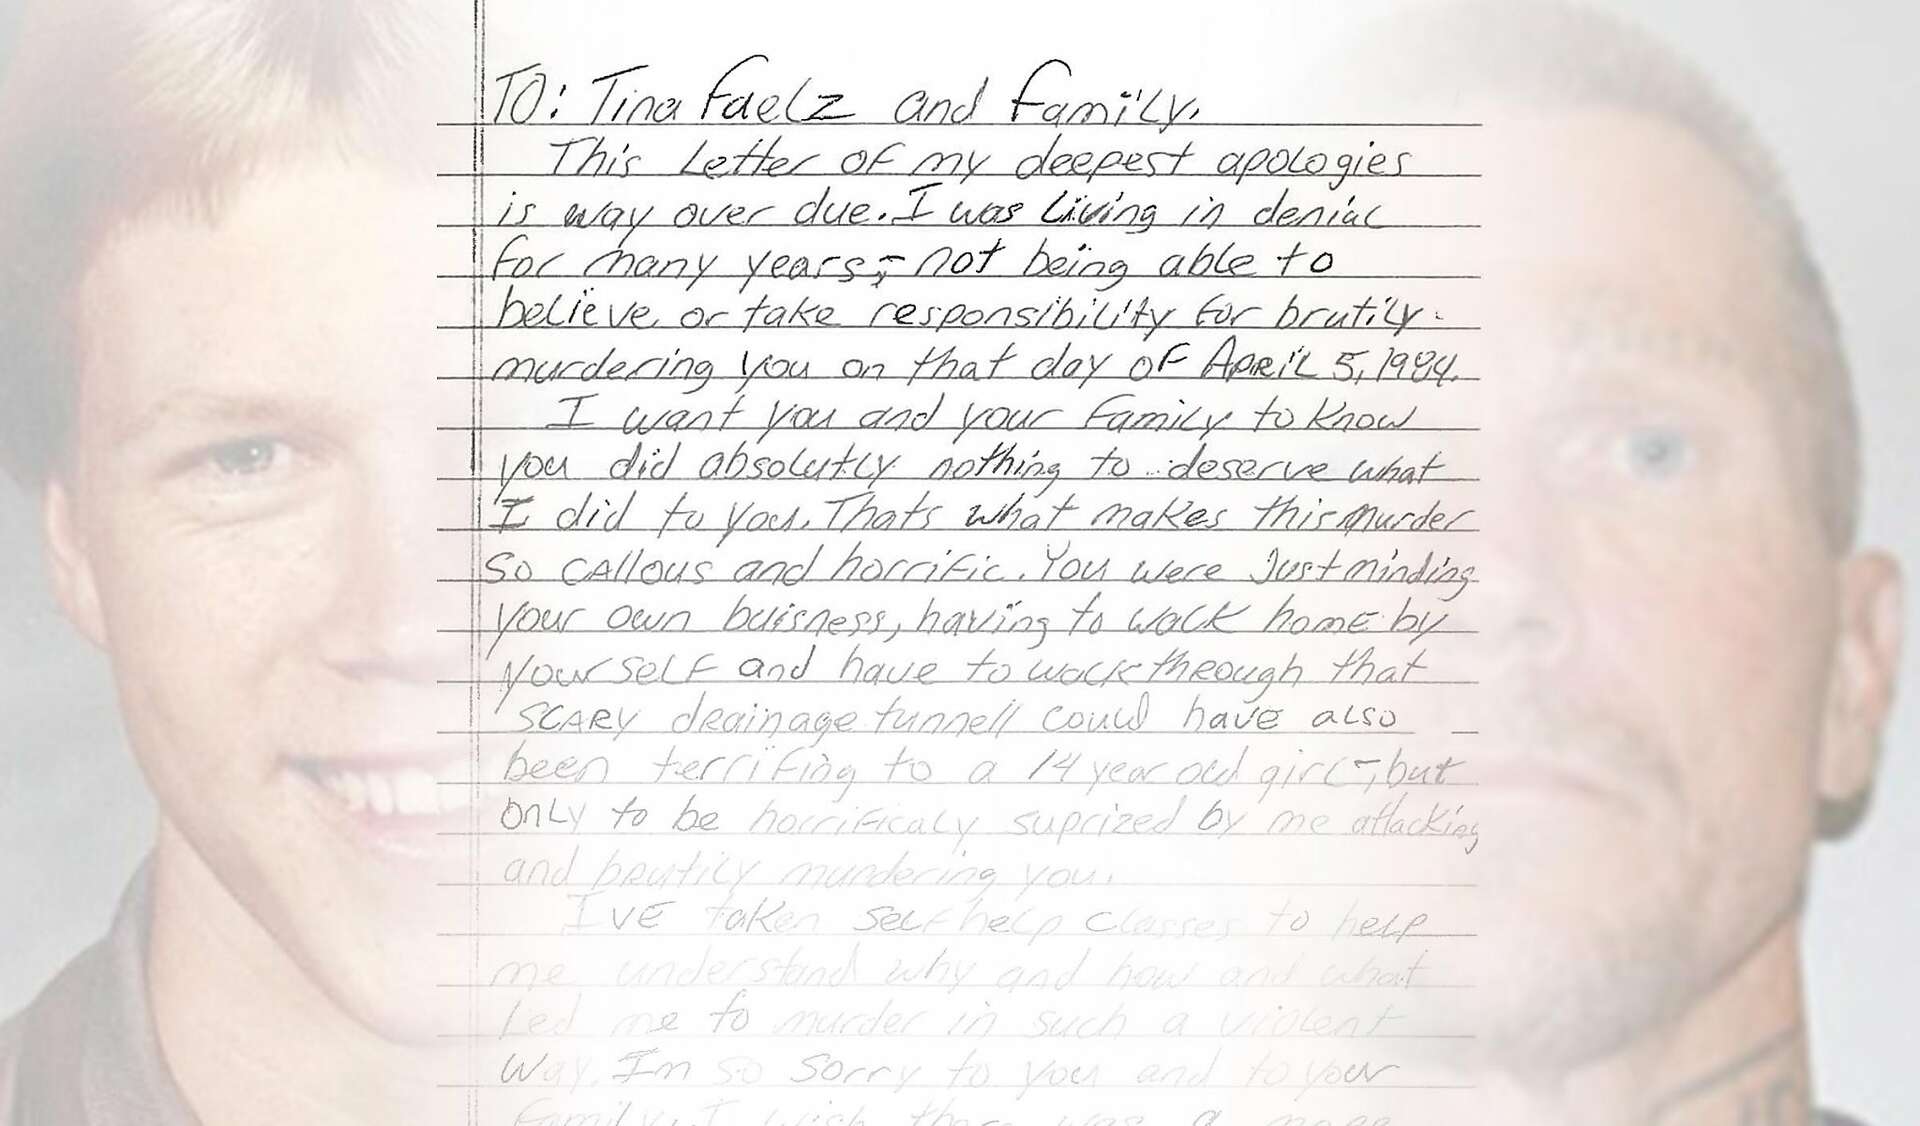 TO: Tina Faelz and Family.
This Letter of my deepest apologies
is way over due. I was Living in denial
for many years,- not being able to
believe or take responsibility for brutily
murdering you on that day of APRIL 5, 1984.
I want you and your family to know
you did absolutly nothing to deserve what
I did to you. Thats what makes this murder
so callous and horrific. You were Just minding
your own buisness, having to walk home by
yourself and have to walk through that
SCARY drainage tunnell could have also
been terrifing to a 14 year old girl-, but
only to be horrificaly suprized by me attacking
and brutily murdering you.
I'VE taken self help classes to help
me understand why and how and what
Led me to murder in such a violent
way. Im so sorry to you and to your
family. I wish there was a more